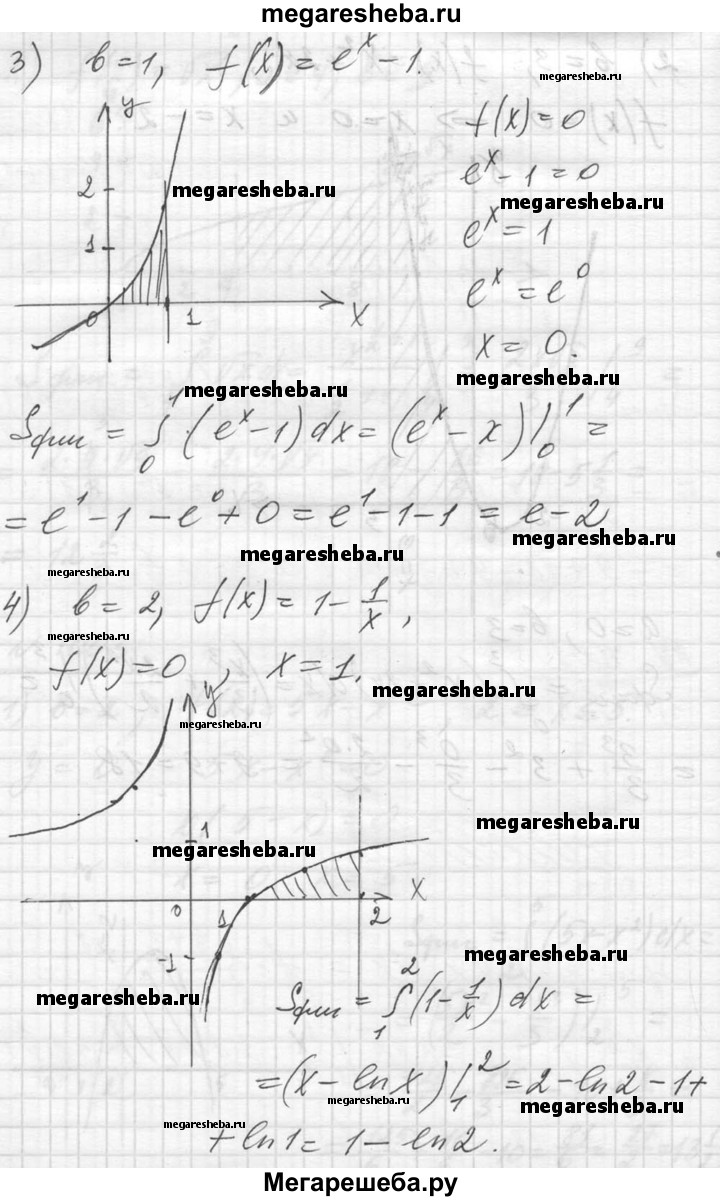 megaresheba.ru
3) b=1, f(x) = e^x - 1.
megaresheba.ru
y
f(x) = 0
2
megaresheba.ru
e^x - 1 = 0
megaresheba.ru
1
e^x = 1
e^x = e^0
0
1
X
x = 0.
megaresheba.ru
megaresheba.ru
Sфиг = ∫_0^1 (e^x - 1) dx = (e^x - x) |_0^1 =
= e^1 - 1 - e^0 + 0 = e^1 - 1 - 1 = e - 2
megaresheba.ru
megaresheba.ru
megaresheba.ru
4) b = 2, f(x) = 1 - 1/x,
megaresheba.ru
f(x) = 0, x = 1.
megaresheba.ru
y
megaresheba.ru
1
megaresheba.ru
megaresheba.ru
X
0
1
2
-1
megaresheba.ru
megaresheba.ru
Sфиг = ∫_1^2 (1 - 1/x) dx =
= (x - ln x) |_1^2 = 2 - ln 2 - 1 +
megaresheba.ru
megaresheba.ru
megaresheba.ru
+ ln 1 = 1 - ln 2.
Мегарешеба.ру